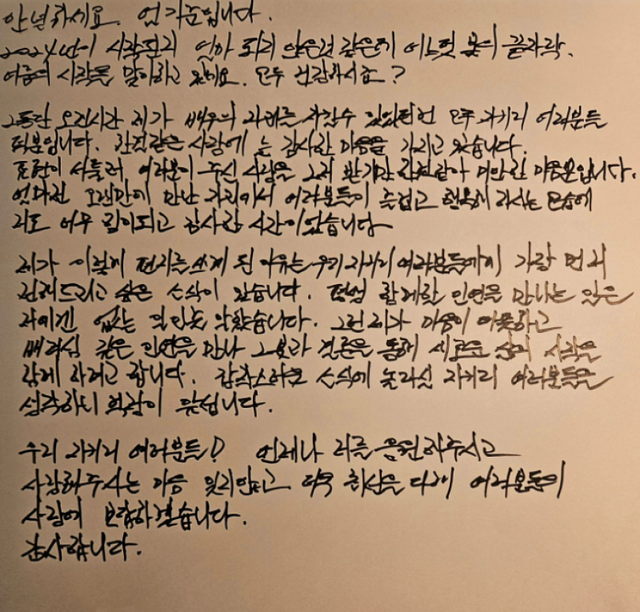 안녕하세요. 엄기준입니다.
2024년이 시작된지 얼마 되지 않은것 같은데 어느덧 봄의 끝자락.
여름의 시작을 맞이하고 있네요. 모두 건강하시죠?
그동안 오랜시간 제가 배우의 자리를 지킬수 있었던건 모두 자키리 여러분들
덕분입니다. 한결같은 사랑에 늘 감사한 마음을 가지고 있습니다.
표현이 서툴러, 여러분이 주신 사랑을 그저 받기만 한것같아 미안한 마음뿐입니다.
얼마전 오랜만에 만난 자리에서 여러분들이 즐겁고 행복해 하시는 모습에
저도 너무 힘이되고 감사한 시간이었습니다
제가 이렇게 편지를 쓰게 된 이유는 우리 자키리 여러분들에게 가장 먼저
전해드리고 싶은 소식이 있습니다. 평생 함께할 인연을 만나는 일은
저에겐 없는 일인줄 알았습니다. 그런 제가 마음이 따뜻하고
배려심 깊은 인연을 만나 그분과 결혼을 통해 새로운 삶의 시작을
함께 하려고 합니다. 갑작스러운 소식에 놀라실 자키리 여러분들을
생각하니 희감이 듭니다.
우리 자키리 여러분들! 언제나 저를 응원해주시고
사랑해주시는 마음 잊지않고 더욱 최선을 다해 여러분들의
사랑에 보답하겠습니다.
감사합니다.